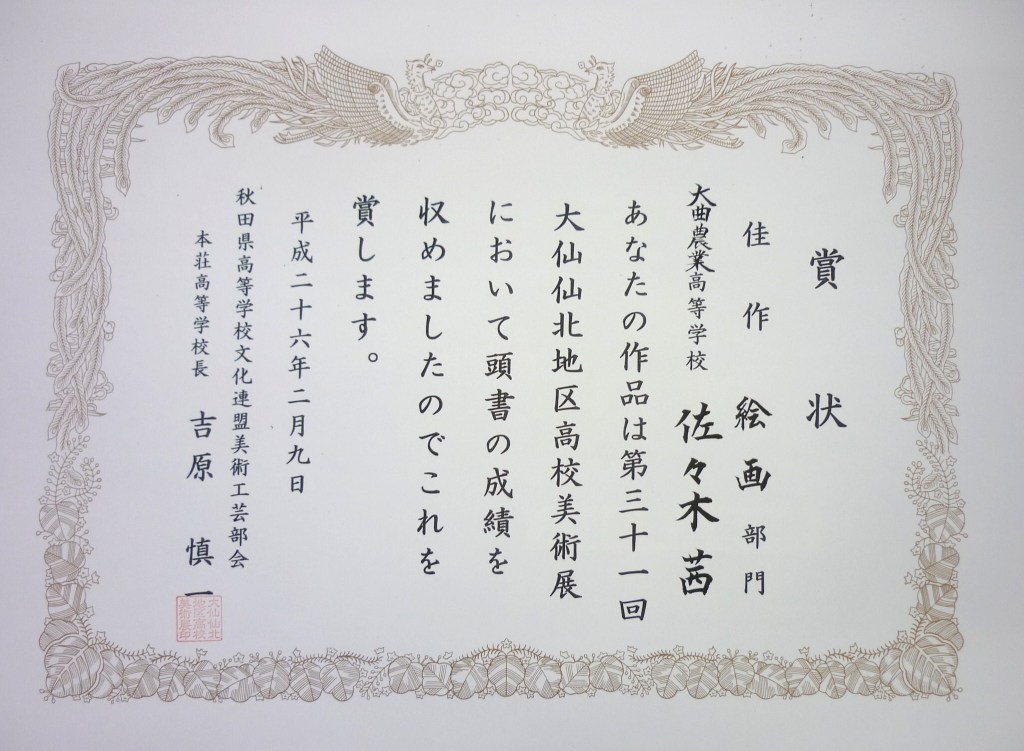 賞状
佳作 絵画部門
大曲農業高等学校 佐々木茜
あなたの作品は第三十一回
大仙仙北地区高校美術展
において頭書の成績を
収めましたのでこれを
賞します。
平成二十六年二月九日
秋田県高等学校文化連盟美術工芸部会
本荘高等学校長 吉原 慎一
大仙仙北
地区高校
美術展印